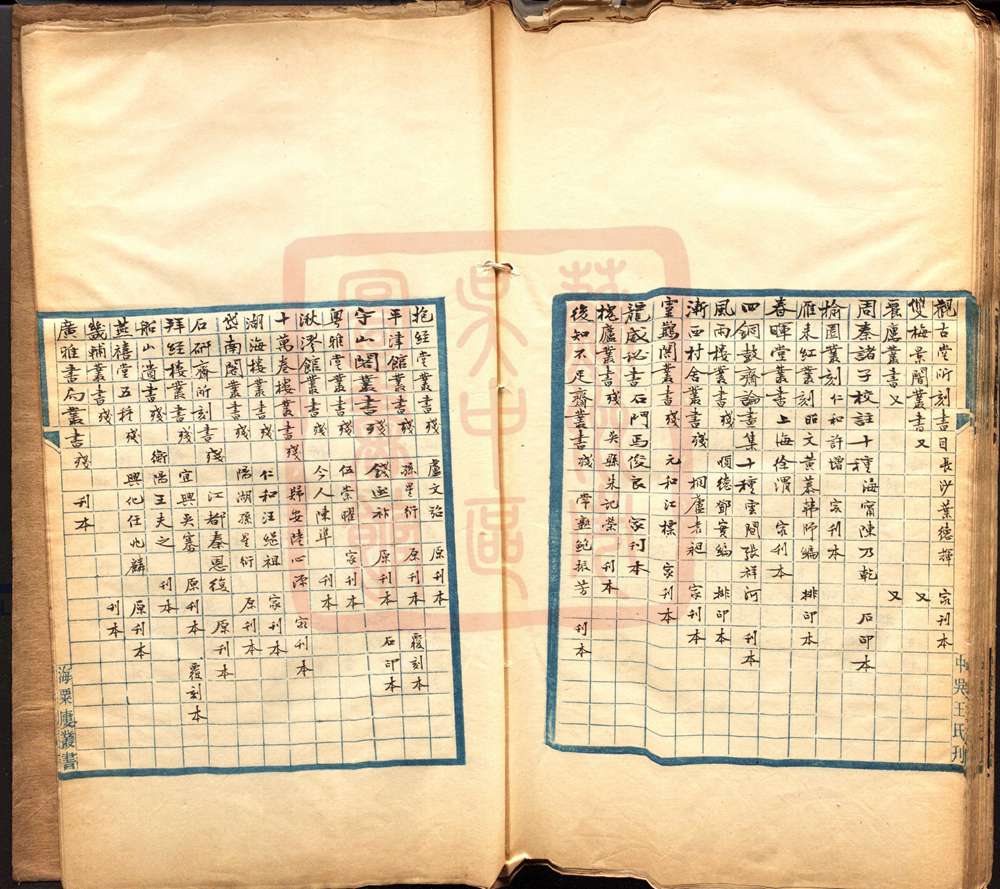 觀古堂所刻書目 長沙葉德輝 家刊本
雙梅景闇叢書 又 又
麗廔叢書 又 又
周秦諸子校註十種 海甯陳乃乾 石印本
榆園叢刻 仁和許增 家刊本
雁來紅叢刻 昭文黃慕韓師編 排印本
春暉堂叢書 上海徐渭 家刊本
四銅鼓齋論畫集十種 雲間張祥河 刊本
風雨樓叢書殘 順德鄧實編 排印本
漸西村舍叢書殘 桐廬袁昶 家刊本
靈鶼閣叢書殘 元和江標 家刊本
龍威祕書 石門馬俊良 家刊本
槐廬叢書殘 吳縣朱記榮 刊本
後知不足齋叢書殘 常熟鮑振芳 刊本
中吳王氏刊
抱經堂叢書殘 盧文弨 原刊本 覆刻本
平津館叢書殘 孫星衍 原刊本 石印本
守山閣叢書殘 錢熙祚 原刊本
粵雅堂叢書殘 伍崇曜 家刊本
湫漻館叢書殘 今人陳準 刊本
十萬卷樓叢書殘 歸安陸心源 家刊本
湖海樓叢書殘 仁和汪繼祖 家刊本
岱南閣叢書殘 陽湖孫星衍 原刊本
石研齋所刻書殘 江都秦恩復 原刊本
拜經樓叢書殘 宜興吳騫 原刊本 覆刻本
船山遺書殘 衡陽王夫之 刊本
黃禧堂五種殘 興化任兆麟 原刊本
畿輔叢書殘 刊本
廣雅書局叢書殘 刊本
海粟廔叢書